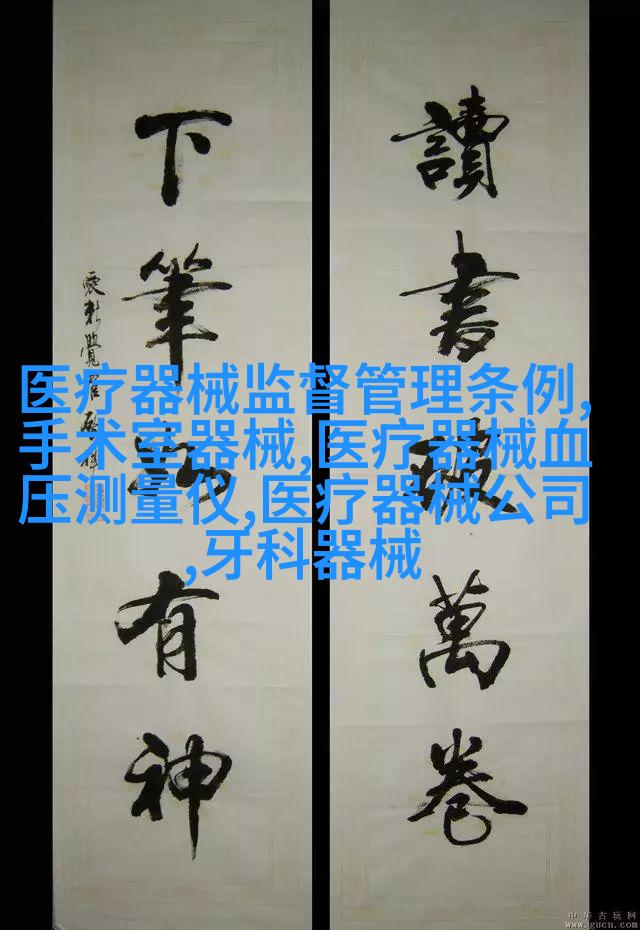 讀書破萬卷
下筆有神
医疗器械监督管理条例,
手术室器械,医疗器械血
压测量仪,医疗器械公司
,牙科器械
中华古玩网
www.gucn.com